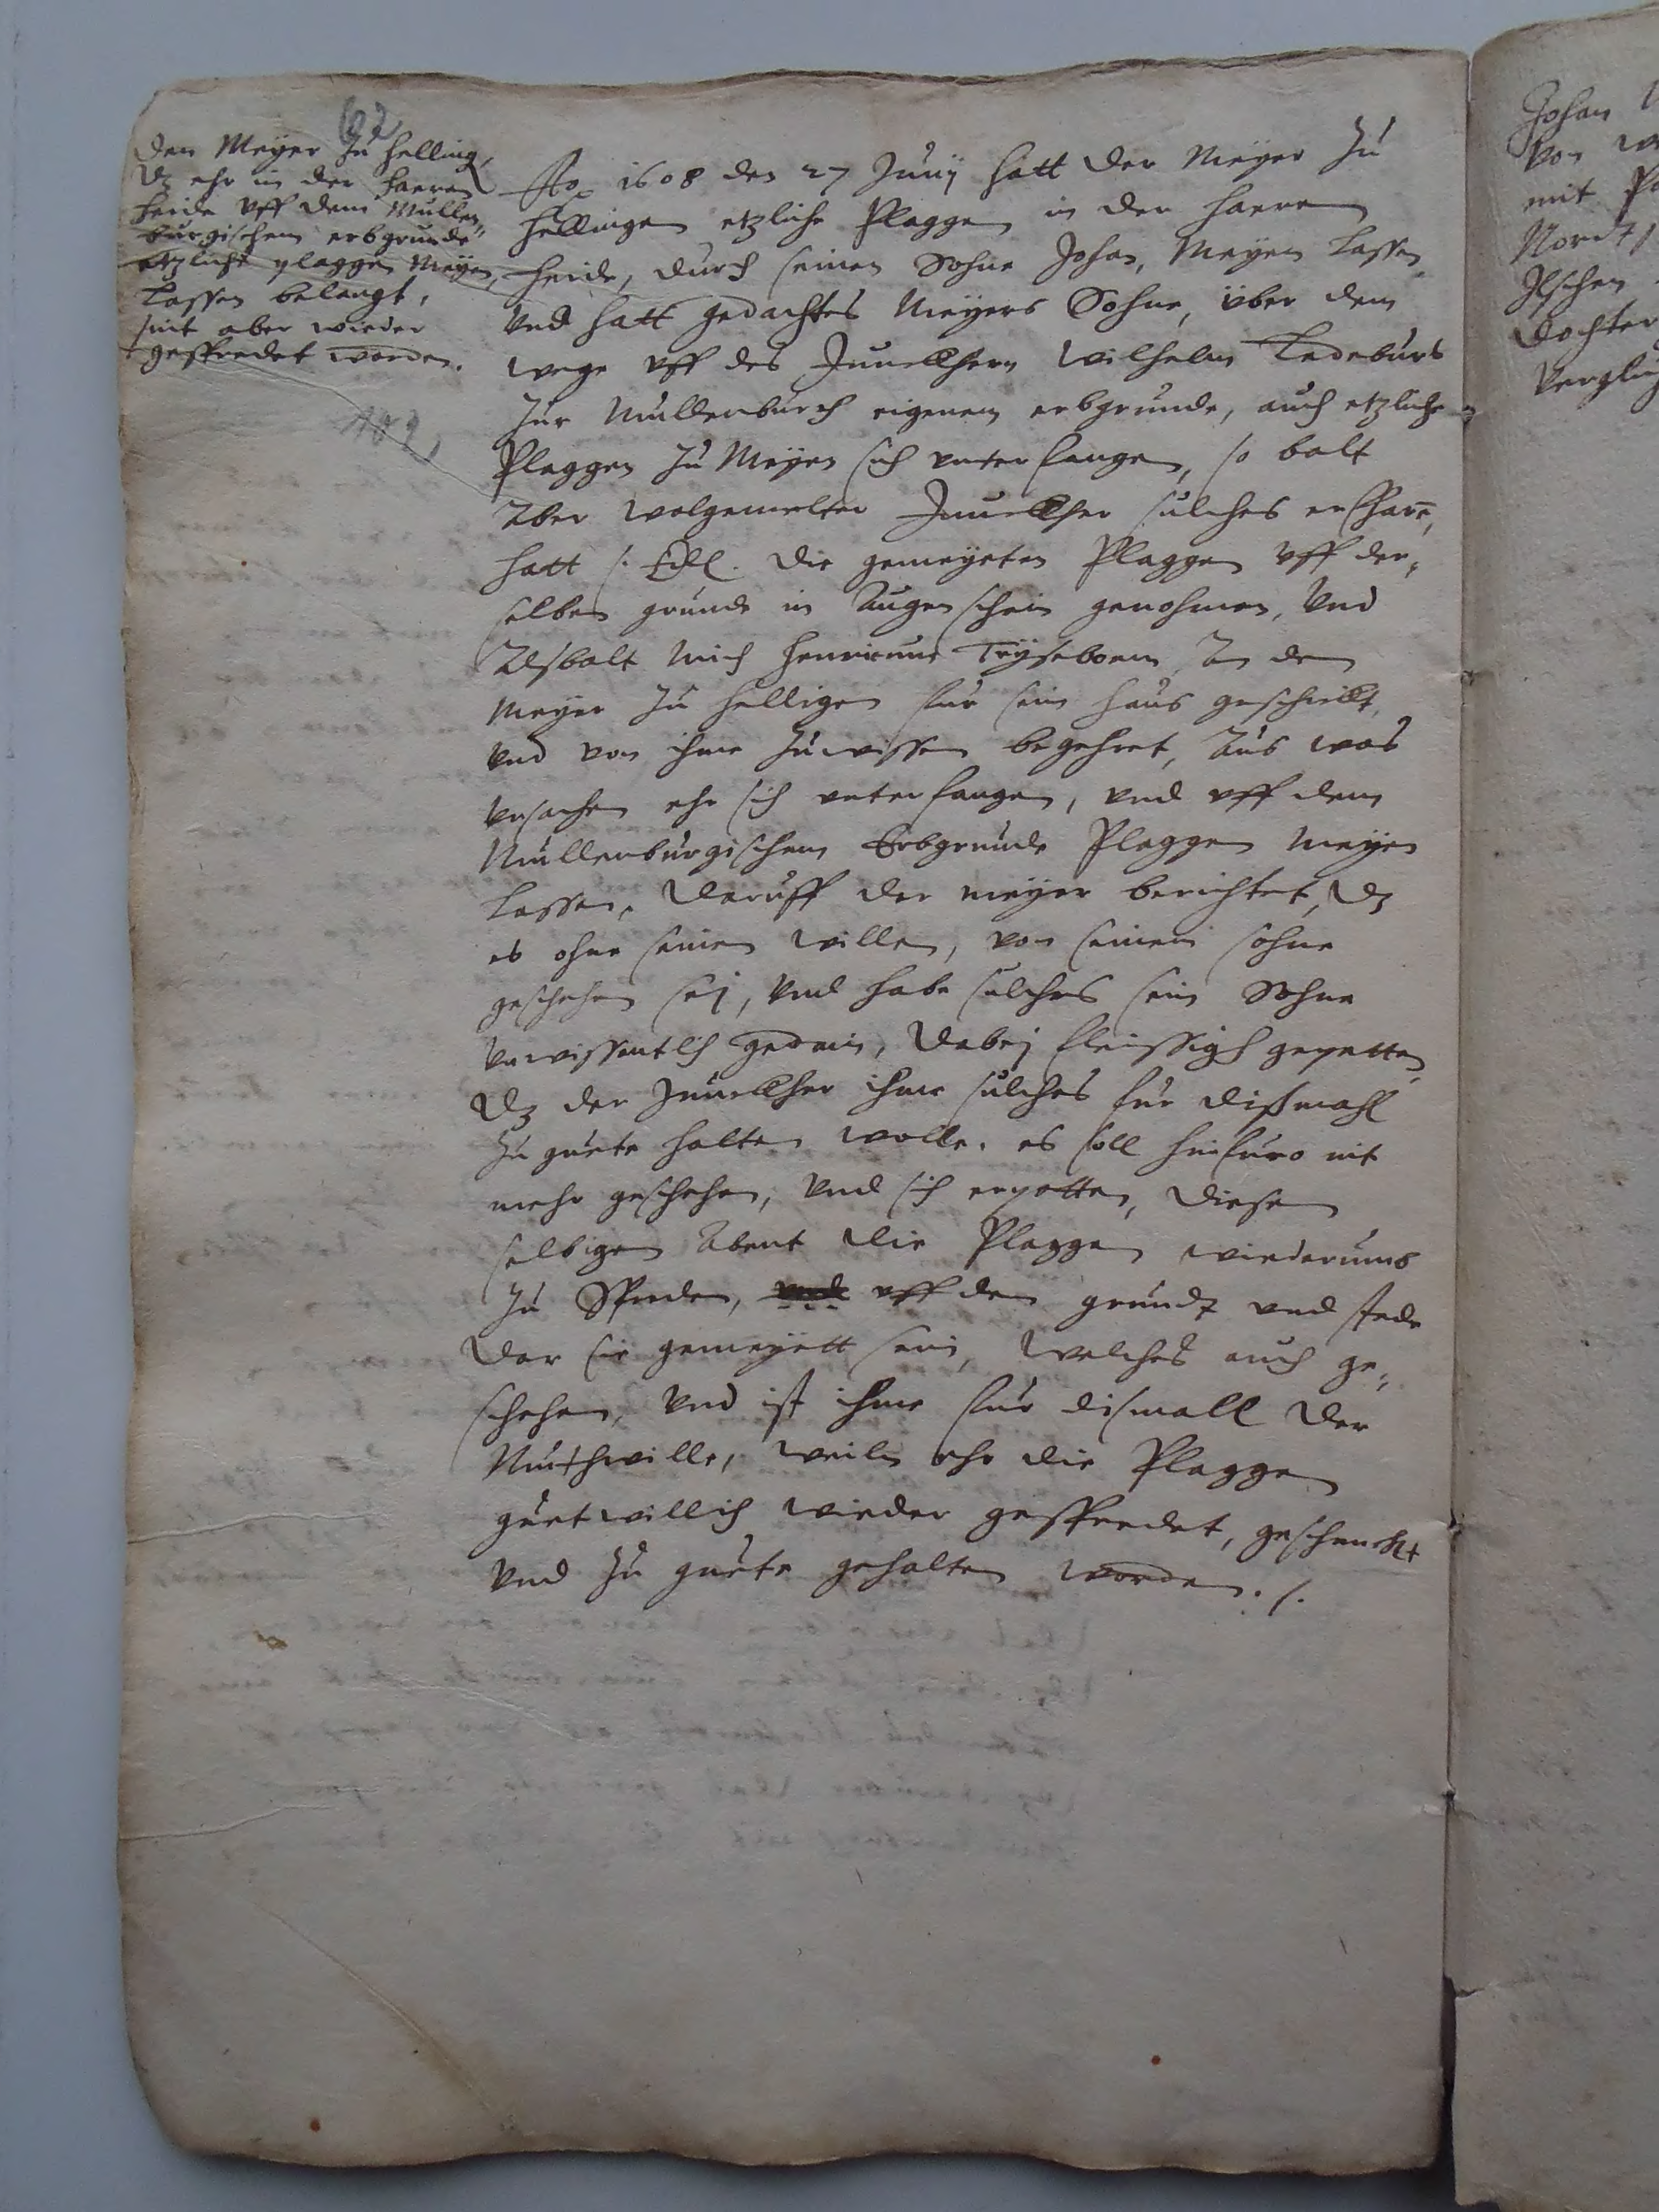 62
Den Meyer zu Helling,
dz ehr in der Haeren
heide vff dem Mullen„
burgischem erbgrunde
etzliche plaggen Meyen,
Lassen belangt,
sint aber wieder
gespredet worden.
Ao 1608 den 27 Junij hatt der Meyer zu
Hellingen etzliche Plaggen in der Haeren
heide, durch seinen Sohne Johan, Meyen Lassen
Vnd hatt gedachtes Meyers Sohne, vber dem
wege vff des Junckhern Wilhelm Ledeburs
zur Mullenburch eigenem erbgrunde, auch etzliche
Plaggen zu Meyen sich unterfangen, so balt
Aber wolgemelter Junckher sulches erfharn,
hatt s. Edl. die gemeyeten Plaggen vff der„
selben grunde in Augenschein genohmen, Vnd
Alsbalt Mich Henricum Tryseboem An den
Meyer zu Helligen fur sein haus geschickt,
Vnd von ihme zuwissen begehret, Aus was
Vrsachen ehr sich unterfangen, vnd vff dem
Mullenburgischem Erbgrunde Plaggen meyen
Lassen, Daruff der meyer berichtet, dz
es ohne seinen willen, von seinem sohne
geschehen sej, Vnd habe sulches sein Sohne
Vnwissentlch gedain, Dabej fleissigh gepetten,
Dz der Junckher ihme sulches fur dissmahl
zu guete halten wolle, es soll hinfuro nit
mehr geschehen, Vnd sich erpotten, diesen
selbigen Abent die Plaggen wiederumb
zu Spreden, vnd vff den grundt vnd stede
Dar sie gemeyett sein, Welches auch ge„
schehen, Vnd ist ihme fur dismall der
Muthwille, weiln ehr die Plaggen
guetwillich wieder gespredet, geschenckt
Vnd zu guete gehalten worden. /.
Johan
Von
mit
Nordt
Ilschen
Dochter
Verglich